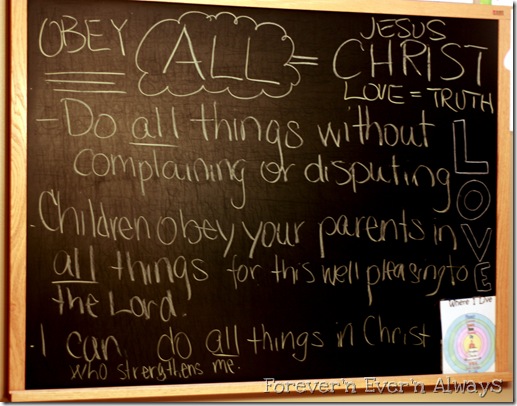 OBEY ALL = JESUS CHRIST
LOVE = TRUTH
- Do all things without
complaining or disputing
LOVE
- Children obey your parents in
all things for this well pleasing to
the Lord.
- I can do all things in Christ
who strengthens me.
Where I Live
Forever'n Ever'n Always